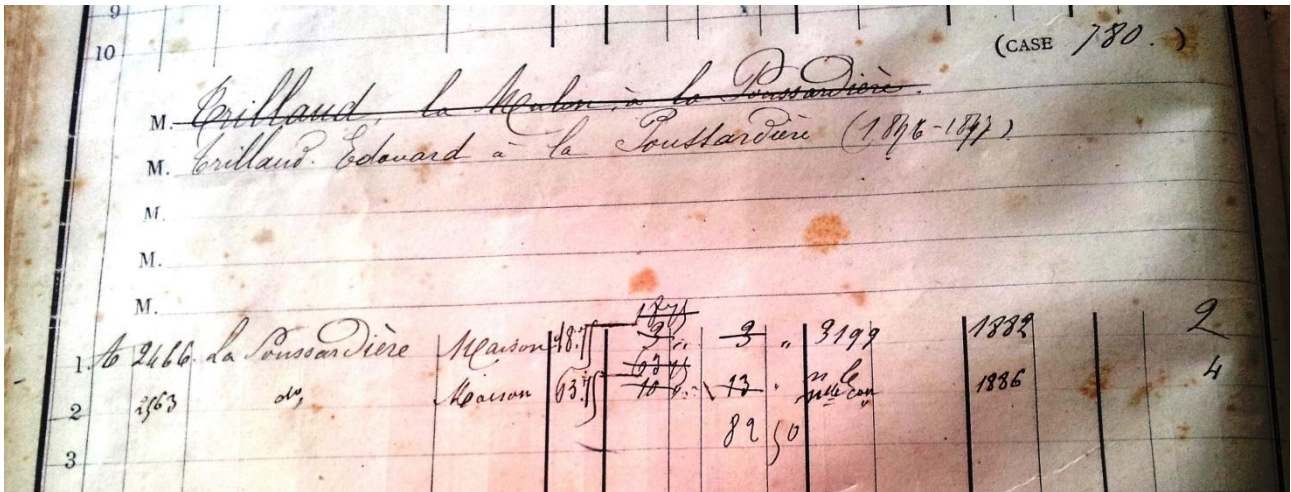 9
10
(CASE 780.)
M. Trillaud, la Meulon, à la Poussardière.
M. Trillaud. Edouard à la Poussardière (1896-1897)
M.
M.
M.
1875
1. A 2466 La Poussardière Maison 18.75 3 " 3 " 3199 1882 2
6375
2 2563 do, Maison 63.75 10 " 13 " nlle con 1886 4
82 50
3